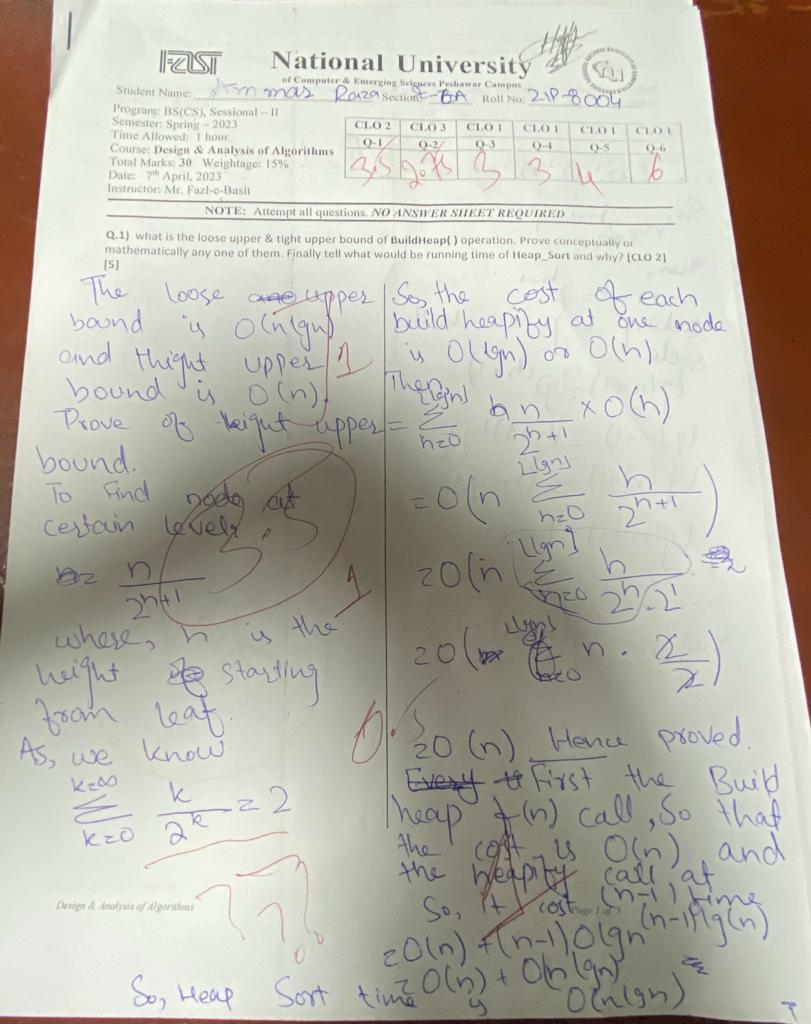 FAST
National University
of Computer & Emerging Sciences Peshawar Campus
Student Name: Ammar Raza Section: BA Roll No: 21P-8004
Program: BS(CS), Sessional – II
Semester: Spring – 2023
Time Allowed: 1 hour
Course: Design & Analysis of Algorithms
Total Marks: 30 Weightage: 15%
Date: 7th April, 2023
Instructor: Mr. Fazl-e-Basit
CLO 2 CLO 3 CLO 1 CLO 1 CLO 1 CLO 1
Q-1 Q-2 Q-3 Q-4 Q-5 Q-6
3.5 2.75 3 3 4 6
NOTE: Attempt all questions. NO ANSWER SHEET REQUIRED
Q.1) what is the loose upper & tight upper bound of BuildHeap( ) operation. Prove conceptually or
mathematically any one of them. Finally tell what would be running time of Heap_Sort and why? [CLO 2]
[5]
The loose upper
bound is O(nlgn)
and thight upper
bound is O(n).
1
Prove of teight upper
bound.
To Find node at
certain level
3.5
n/2^(h+1)
1
where, h is the
height starting
from leaf.
As, we know
k=∞
Σ k/2^k = 2
k=0
???
So, the cost of each
build heapify at one node
is O(lgn) or O(h)
Then,
= Σ^⌊lgn⌋_h=0 n/2^(h+1) × O(h)
= O(n Σ^⌊lgn⌋_h=0 h/2^(h+1))
= O(n Σ^⌊lgn⌋_h=0 h/2^h.2^1)
= O( n . 2/2)
0.5
= O(n) Hence proved.
First the Build
heap f(n) call, So that
the cost is O(n) and
the heapify call at
(n-1) time
So, it cost (n-1)lg(n)
1
= O(n) + (n-1)Olgn
= O(n) + O(nlgn)
So, Heap Sort time is O(nlgn)
Design & Analysis of Algorithms
Page 1 of